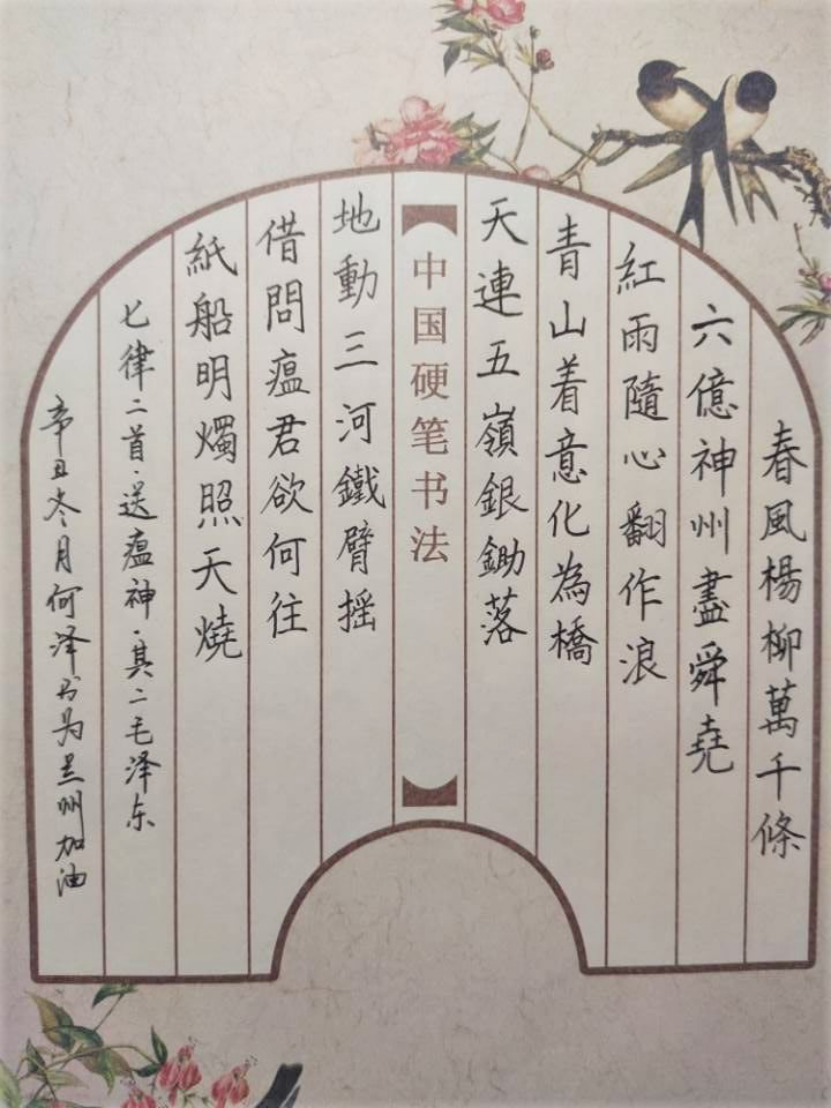 春風楊柳萬千條
六億神州盡舜堯
紅雨隨心翻作浪
青山着意化為橋
天連五嶺銀鋤落
中国硬笔书法
地動三河鐵臂摇
借問瘟君欲何往
紙船明燭照天燒
七律二首·送瘟神·其二毛泽东
辛丑冬月何泽书为兰州加油